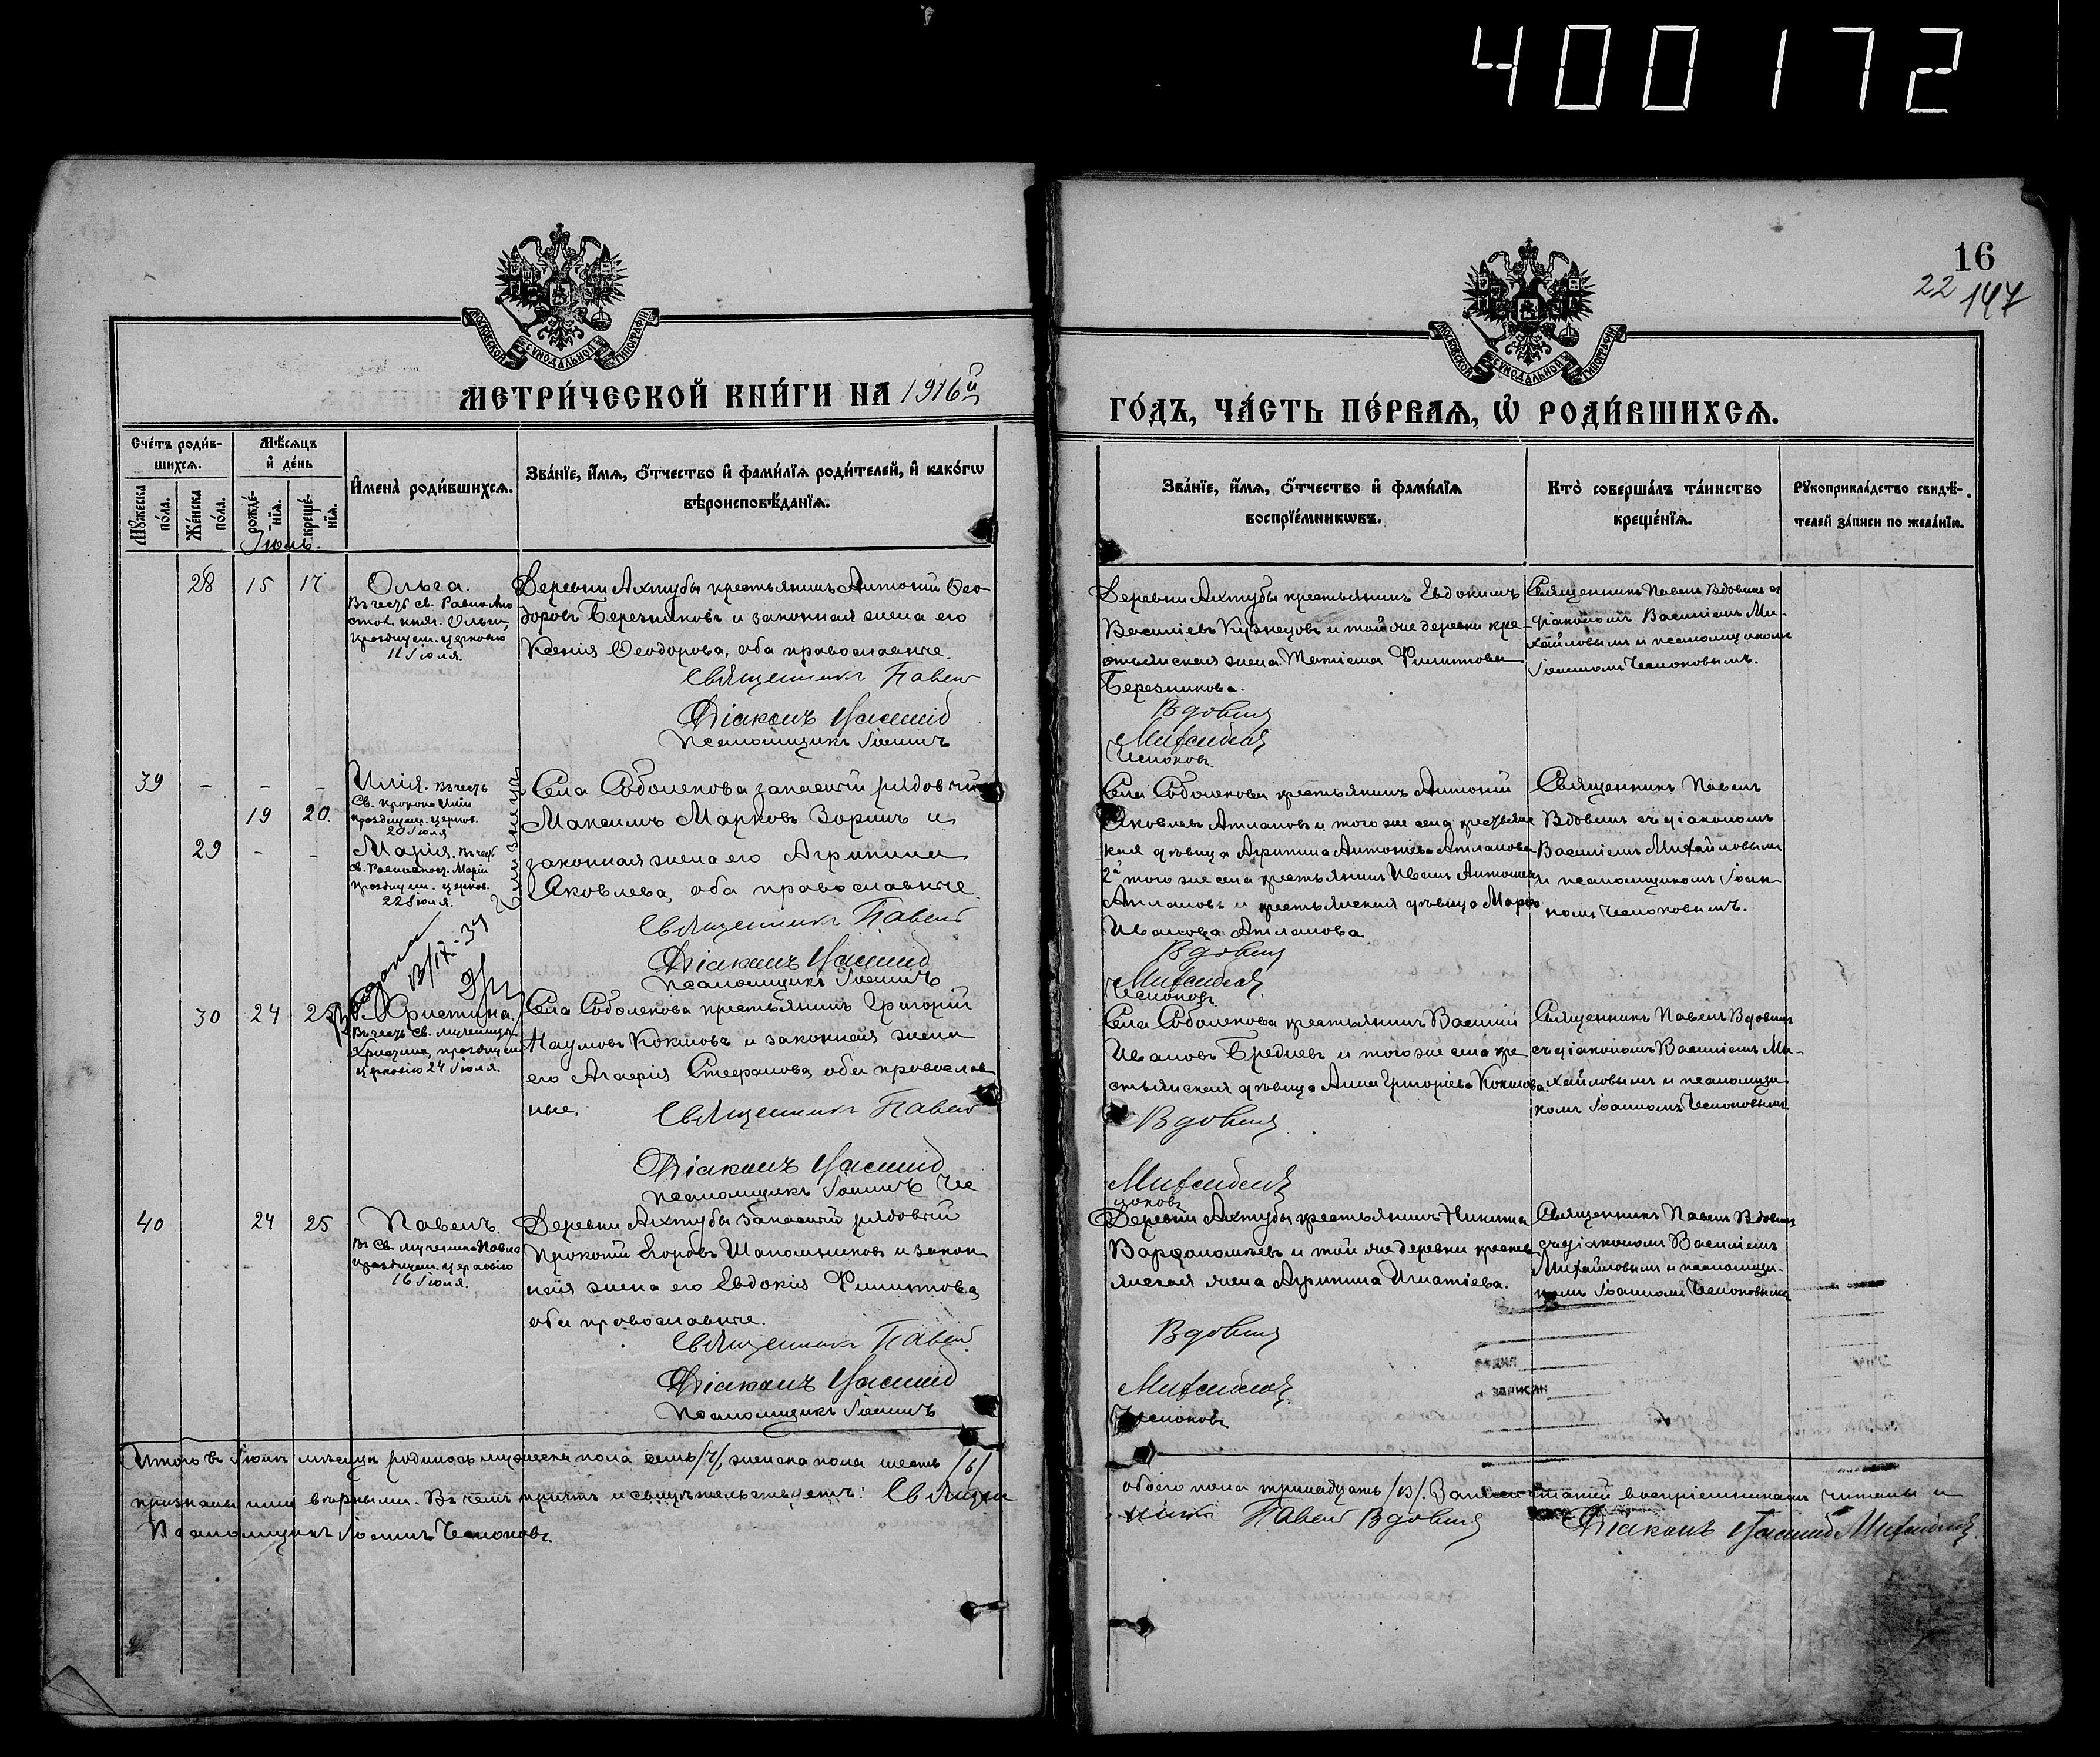 400172
16
22
147
МОСКОВСКОЙ СѴНОДАЛЬНОЙ ТИПОГРАФІИ
МОСКОВСКОЙ СѴНОДАЛЬНОЙ ТИПОГРАФІИ
МЕТРИ́ЧЕСКОЙ КНИ́ГИ НА 1916й
ГО́ДЪ, ЧА́СТЬ ПЕ́РВАѦ, Ѡ҆ РОДИ́ВШИХСѦ.
Сче́тъ роди́в-
шихсѧ.
Мꙋ́жеска по́ла.
Же́нска по́ла.
Мѣ́сѧцъ
и҆ де́нь
рожде́-нїѧ.
креще́-нїѧ.
И҆мена̀ роди́вшихсѧ.
Зва́нїе, и҆́мѧ, ѻ҆́тчество и҆ фами́лїѧ роди́телей, и҆ како́гѡ
вѣроисповѣ́данїѧ.
Зва́нїе, и҆́мѧ, ѻ҆́тчество и҆ фами́лїѧ
воспрїе́мникѡвъ.
Кто̀ соверша́лъ та́инство
креще́нїѧ.
Рꙋкоприкла́дство свидѣ́-
телей за́писи по жела́нїю.
Іюль.
28 15 17
Ольга.
Въ честь св. Равноапо
стол. княг. Ольги,
празднуем. церковію
11 Іюля.
Деревни Ахтубы крестьянинъ Антоній Ѳео-
доровъ Березниковъ и законная жена его
Ксенія Ѳеодорова, оба православные.
Священникъ Павелъ
Діаконъ Василій
Псаломщикъ Іоаннъ
Деревни Ахтубы крестьянинъ Евдокимъ
Василіевъ Кузнецовъ и той же деревни кре-
стьянская жена Татіана Филиппова
Березникова.
Вдовинъ
Михайловъ
Чесноковъ.
Священникъ Павелъ Вдовинъ съ
діакономъ Василіемъ Ми-
хайловымъ и псаломщикомъ
Іоанномъ Чесноковымъ.
39 - - -
19 20.
29 - -
Илія. Въ честь
Св. пророка Иліи
празднуем. церков.
20 Іюля
Марія. Въ честь
Св. Равноапост. Маріи
празднуем. церков.
22 Іюля.
Близнецы
Села Соболекова запасный рядовый
Максимъ Марковъ Зоринъ и
законная жена его Агрипина
Яковлева, оба православные.
Священникъ Павелъ
Діаконъ Василій
Псаломщикъ Іоаннъ
Села Соболекова крестьянинъ Антоній
Яковлевъ Атлановъ и того же села крестьянс
кая дѣвица Агрипина Антоніева Атланова
2й того же села крестьянинъ Иванъ Антоніевъ
Атлановъ и крестьянская дѣвица Марѳа
Иванова Атланова
Вдовинъ
Михайловъ.
Чесноковъ.
Священникъ Павелъ
Вдовинъ съ діакономъ
Василіемъ Михайловымъ
и псаломщикомъ Іоан
номъ Чесноковымъ.
В/IX-37
30 24 25
Христина.
Въ честь св. мученицы
Христины, празднуем
церковію 24 Іюля.
Села Соболекова крестьянинъ Григорій
Наумовъ Кокшовъ и законная жена
его Агаѳія Стефанова, оба православ
ные.
Священникъ Павелъ
Діаконъ Василій
Псаломщикъ Іоаннъ Чес
Села Соболекова крестьянинъ Василій
Ивановъ Бредневъ и того же села кре
стьянская дѣвица Анна Григоріева Кокшова
Вдовинъ
Михайловъ
ноковъ
Священникъ Павелъ Вдовинъ
съ діакономъ Василіемъ Ми-
хайловымъ и псаломщи
комъ Іоанномъ Чесноковымъ
40 24 25
Павелъ.
Въ Св. мученика Павла
празднуем. церковію
16 Іюля.
Деревни Ахтубы запасный рядовый
Прокопій Егоровъ Шапошниковъ и закон
ная жена его Евдокія Филиппова,
оба православные.
Священникъ Павелъ
Діаконъ Василій
Псаломщикъ Іоаннъ
Деревни Ахтубы крестьянинъ Никита
Варѳоломѣевъ и той же деревни кресть
янская жена Агрипина Игнатіева.
Вдовинъ
Михайловъ
Чесноковъ
Священникъ Павелъ Вдовинъ
съ діакономъ Василіемъ
Михайловымъ и псаломщи-
комъ Іоанномъ Чесноковымъ
записан
Итого въ Іюлѣ мѣсяцѣ родилось мужеска пола семь /7/, женска пола шесть /6/
обоего пола тринадцать /13/. Записи статей воспріемникамъ читаны и
признаны ими вѣрными. Въ чемъ причтъ и свидѣтельствуетъ: Священ
никъ Павелъ Вдовинъ Діаконъ Василій Михайловъ.
Псаломщикъ Іоаннъ Чесноковъ.